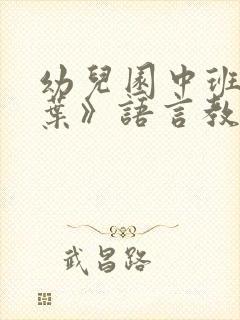 幼兒園中班
葉》語言教
武昌路